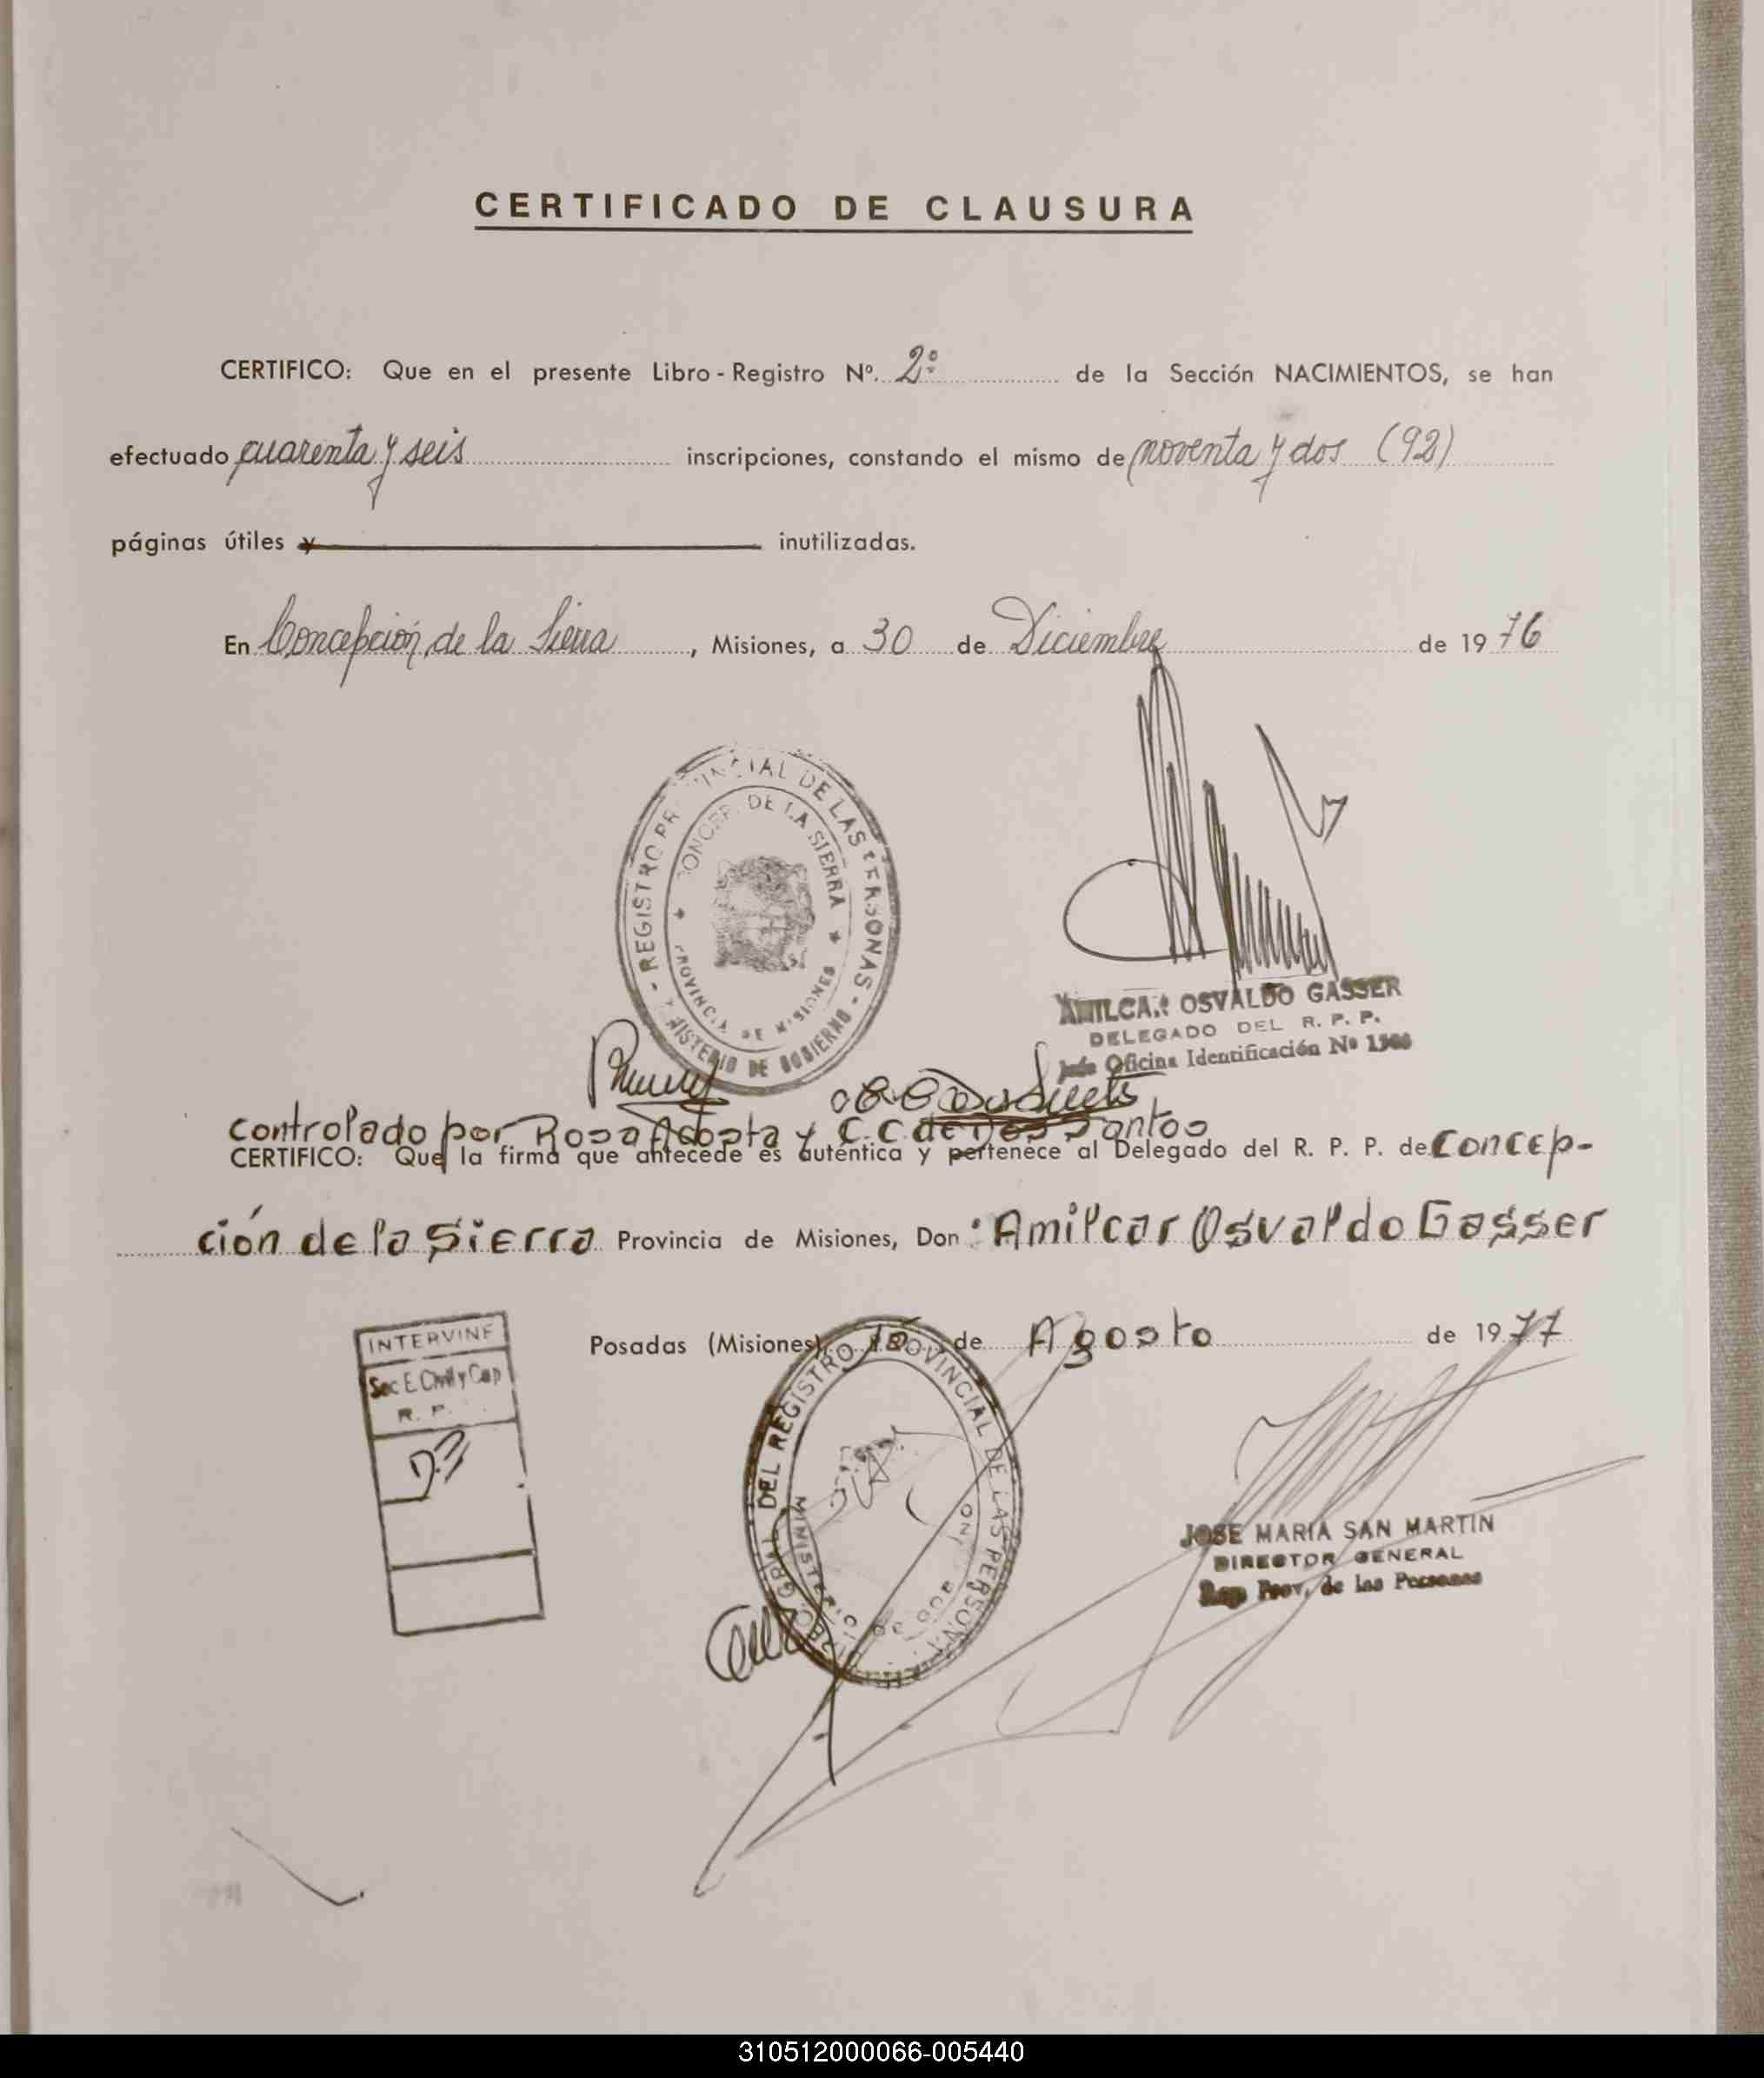 CERTIFICADO DE CLAUSURA
CERTIFICO: Que en el presente Libro - Registro Nº. 2º de la Sección NACIMIENTOS, se han
efectuado cuarenta y seis inscripciones, constando el mismo de noventa y dos (92)
páginas útiles y inutilizadas.
En Concepción de la Sierra, Misiones, a 30 de Diciembre de 1976
REGISTRO PROVINCIAL DE LAS PERSONAS
CONCEP. DE LA SIERRA
PROVINCIA DE MISIONES
MINISTERIO DE GOBIERNO
AMILCAR OSVALDO GASSER
DELEGADO DEL R. P. P.
Jefe Oficina Identificación Nº
Controlado por Rosa Acosta y C.C de Dos Santos
CERTIFICO: Que la firma que antecede es auténtica y pertenece al Delegado del R. P. P. de Concep-
ción de la Sierra Provincia de Misiones, Don: Amilcar Osvaldo Gasser
INTERVINE
Sec E. Civil y Cap
R. P.
Posadas (Misiones), de Agosto de 1977
DEL REGISTRO PROVINCIAL DE LAS PERSONAS
MINISTERIO
JOSE MARIA SAN MARTIN
DIRECTOR GENERAL
Reg. Prov. de las Personas
310512000066-005440